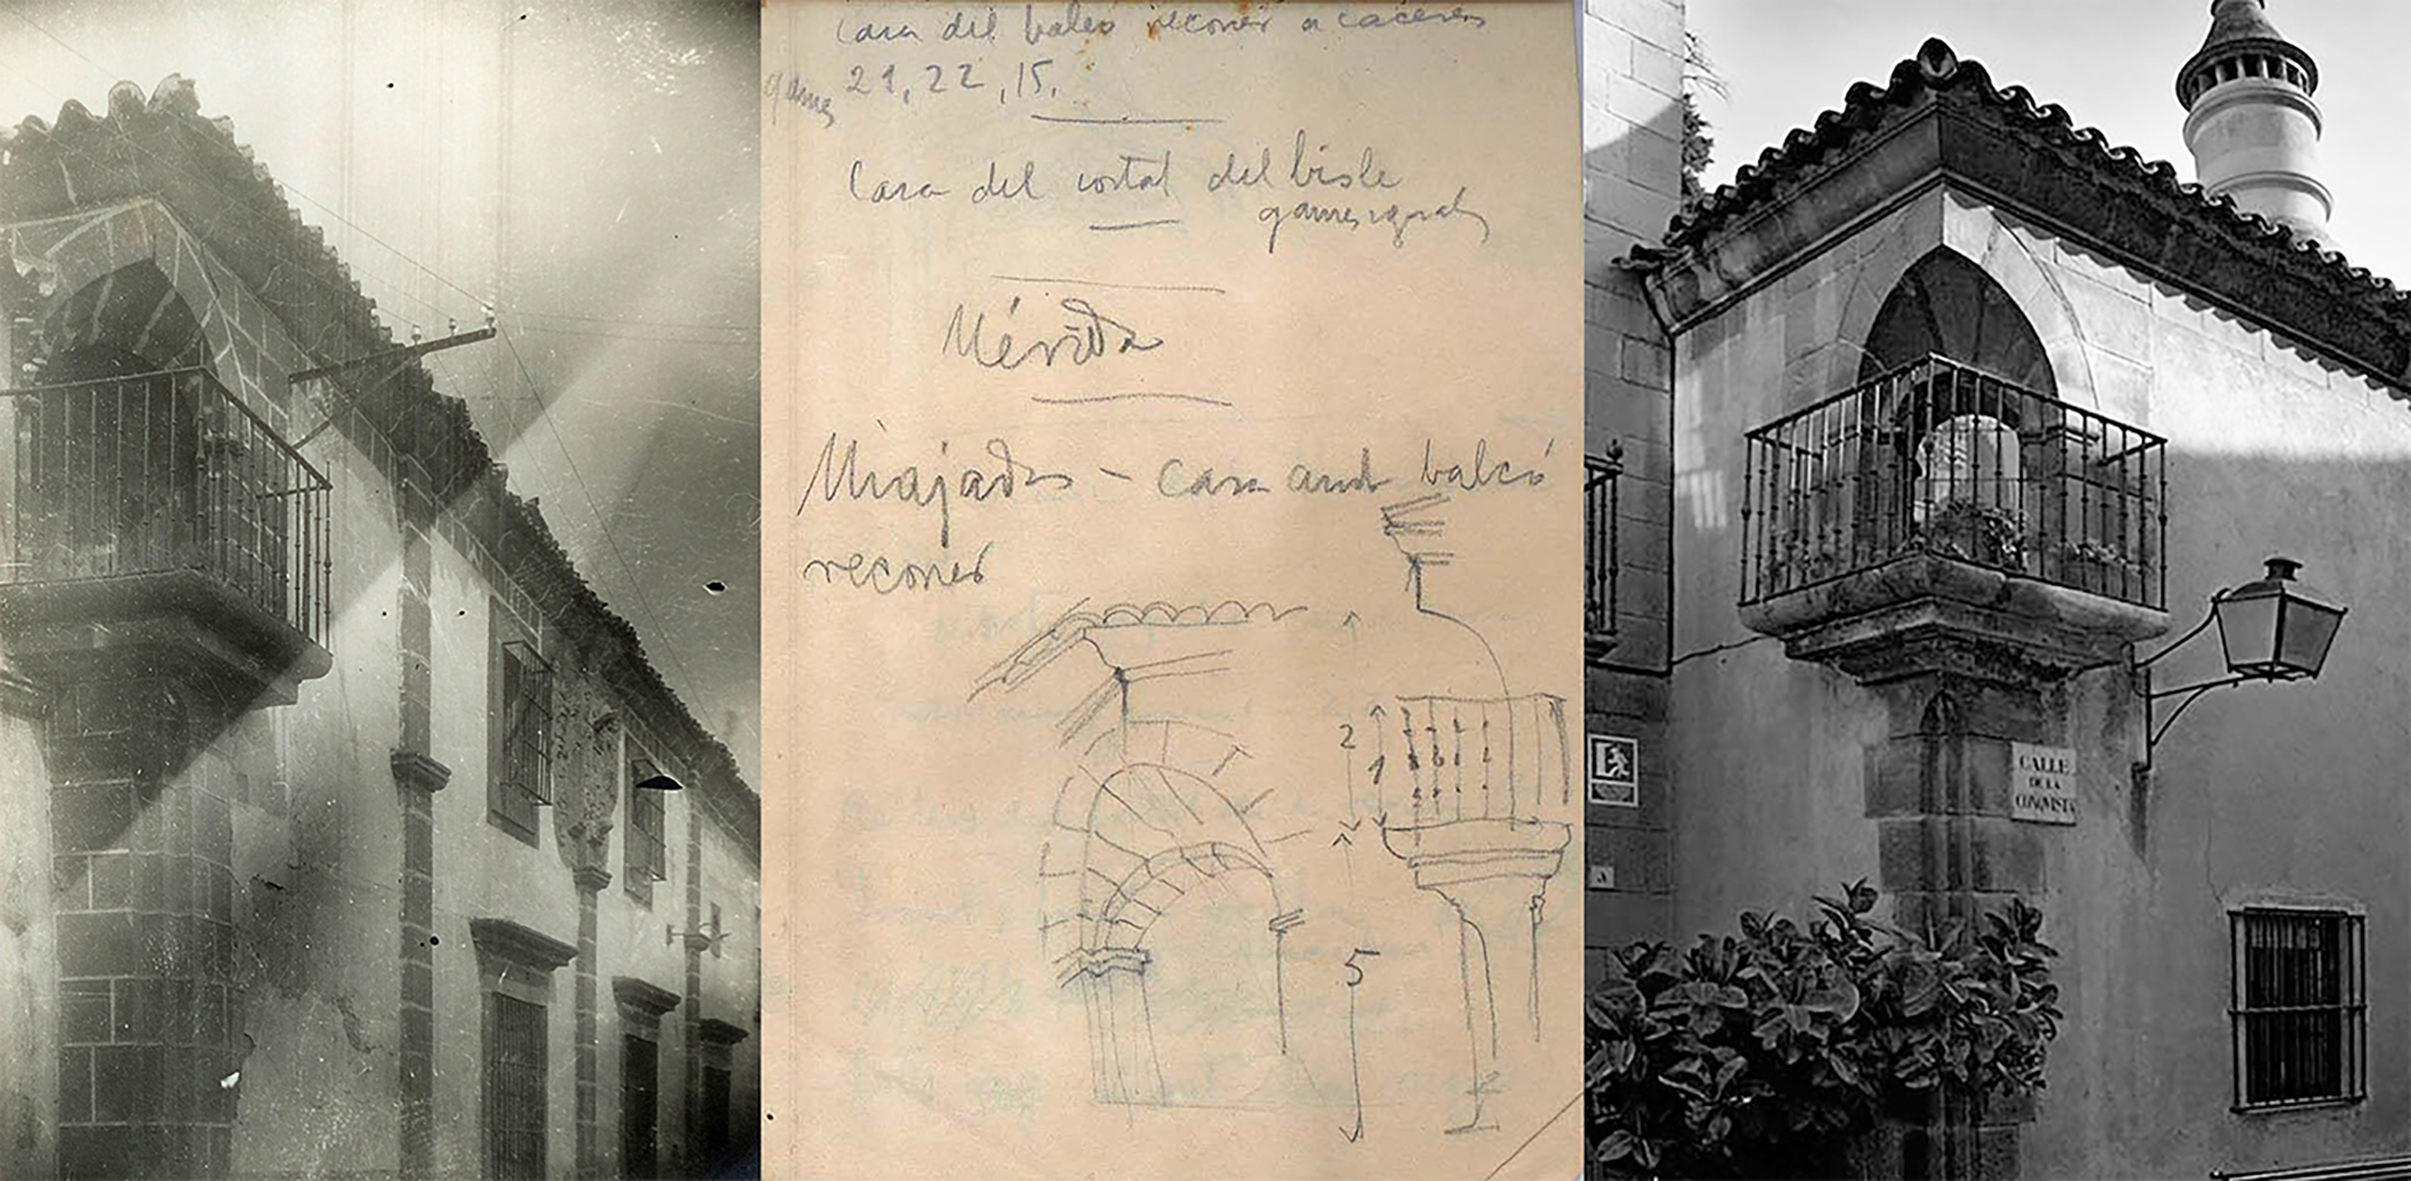 Casa del balco reconer a caceres
21, 22, 15.
Casa del portal del bisbe
games iguals
Mérida
Miajadas - casa amb balcó
reconer
2
1
5
CALLE
DE LA
CONQVISTA